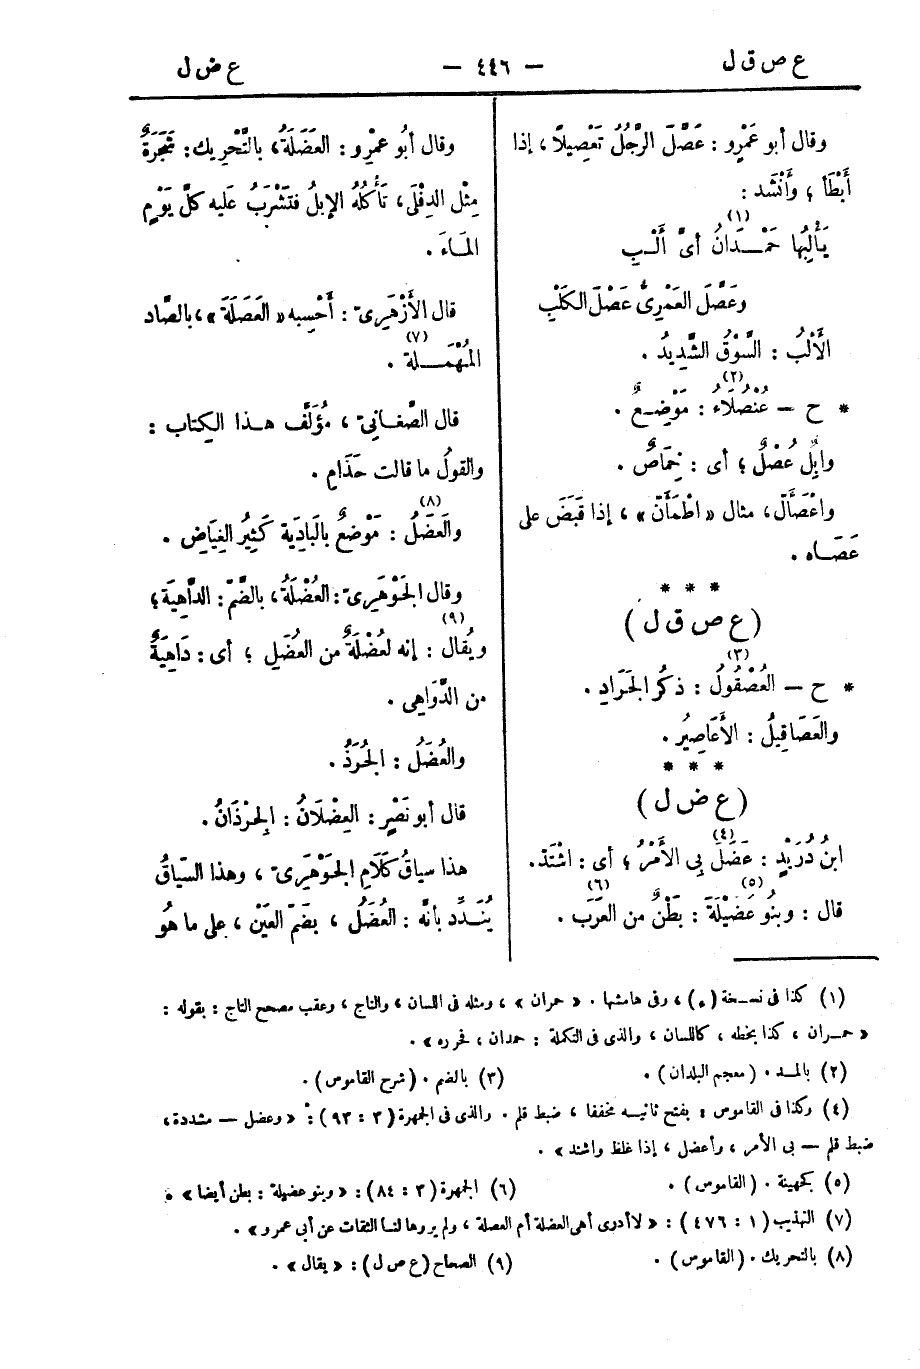 ع ص ق ل
— ٤٤٦ —
ع ض ل
وقال أبو عَمْرٍو : عَصَّلَ الرَّجُلُ تَعْصِيلًا ، إذا
أَبْطَأَ ؛ وأَنْشَد :
يَأْلِبُها حَمْـدَانُ أىَّ أَلْـبِ (١)
وعَصَّلَ العَمْرِىُّ عَصْلَ الكَلْبِ
الأَلْبُ : السَّوْقُ الشَّدِيدُ .
* ح — عُنْصُلَاءُ : مَوْضِـعٌ . (٢)
وإبِلٌ عُصْلٌ ؛ أى : خِمَاصٌ .
واعْصَأَلَّ ، مثال « اطْمَأَنّ » ، إذا قَبَضَ على
عَصَـاه .
* * *
( ع ص ق ل )
* ح — العُصْقُولُ : ذكَرُ الجَرَادِ . (٣)
والعَصَاقِيلُ : الأَعَاصِيرُ .
* * *
( ع ض ل )
ابنُ دُرَيْدٍ : عَضَلَ بِى الأَمْرُ ؛ أى : اشْتَدّ . (٤)
قال : وبنُو عَضِيْلَةَ : بَطْنٌ من العَرَب . (٥) (٦)
وقال أبُو عمْرٍو : العَضَلَةُ ، بالتَّحْرِيك : شَجَرَةٌ
مِثْل الدِفْلَى ، تَأْكلُهُ الإبلُ فتَشْرَبُ عَلَيه كلَّ يَوْمٍ
المَـاءَ .
قال الأَزْهَرِىّ : أَحْسِبه « العَصَلَةَ » ، بالصَّاد
المُهْمَــلة . (٧)
قال الصَّغانِىّ ، مُؤَلَّف هـذا الكِتاب :
والقولُ ما قالت حَذَامِ .
والعَضَلُ : مَوْضِعٌ بالبَادِيَة كَثِيرُ الغِيَاضِ . (٨)
وقال الجَوْهَرِىّ : العُضْلَةُ ، بالضَّمّ : الدَّاهِيَة ؛
ويُقال : إنه لعُضْلَةٌ من العُضَلِ ؛ أى : دَاهِيَةٌ (٩)
من الدَّوَاهِى .
والعُضَلُ : الجُرَذُ .
قال أبو نَصْرٍ : العِضْلَانُ : الجِرْذَانُ .
هذا سياقُ كَلَامِ الجَوْهَرِىّ ، وهذا السِّيَاقُ
يُنَـدِّد بأنَّه : العُضَلُ ، بضَمّ العَيْن ، على ما هُو
(١) كذا فى نسـخة (م) ، وفى هامشها . « حمران » ، ومثله فى اللسان ، والتاج ، وعقب مصحح التاج : بقوله :
« حمـران ، كذا بخطه ، كاللسان ، والذى فى التكملة : حمدان ، فحرره » .
(٢) بالمـد . (معجم البلدان) .
(٣) بالضم . (شرح القاموس) .
(٤) وكذا فى القاموس : بفتح ثانيـه مخففا ، ضبط قلم . والذى فى الجمهرة (٣ : ٩٣) : « وعضل — مشددة ،
ضبط قلم — بى الأمر ، وأعضل ، إذا غلظ واشتد » .
(٥) كجهينة . (القاموس) .
(٦) الجمهرة (٣ : ٨٤) : « وبنو عضيلة : بطن أيضا » .
(٧) التهذيب (١ : ٤٧٦) : « لا أدرى أهى العضلة أم العصلة ، ولم يروها لنـا الثقات عن أبى عمرو » .
(٨) بالتحريك . (القاموس) .
(٩) الصحاح (ع ص ل) : « يقال » .